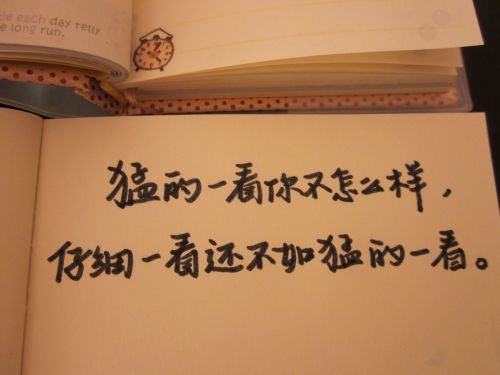 each day relly
long run.
猛的一看你不怎么样，
仔细一看还不如猛的一看。